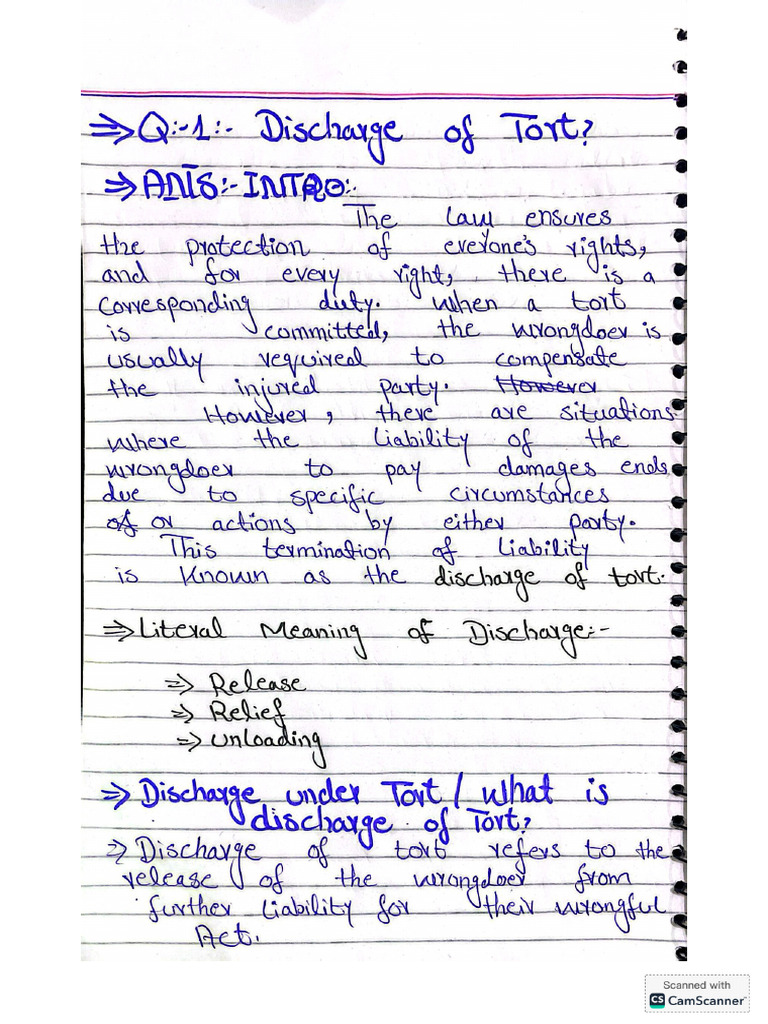 ⇒ Q:-1:- Discharge of Tort?
⇒ ANS:- INTRO:-
The law ensures
the protection of everyone's rights,
and for every right, there is a
corresponding duty. When a tort
is committed, the wrongdoer is
usually required to compensate
the injured party. However
However, there are situations
where the liability of the
wrongdoer to pay damages ends
due to specific circumstances
of or actions by either party.
This termination of liability
is known as the discharge of tort.
⇒ Literal Meaning of Discharge:-
⇒ Release
⇒ Relief
⇒ Unloading
⇒ Discharge under Tort / What is
discharge of Tort?
⇒ Discharge of tort refers to the
release of the wrongdoer from
further liability for their wrongful
Act.
Scanned with
CS CamScanner